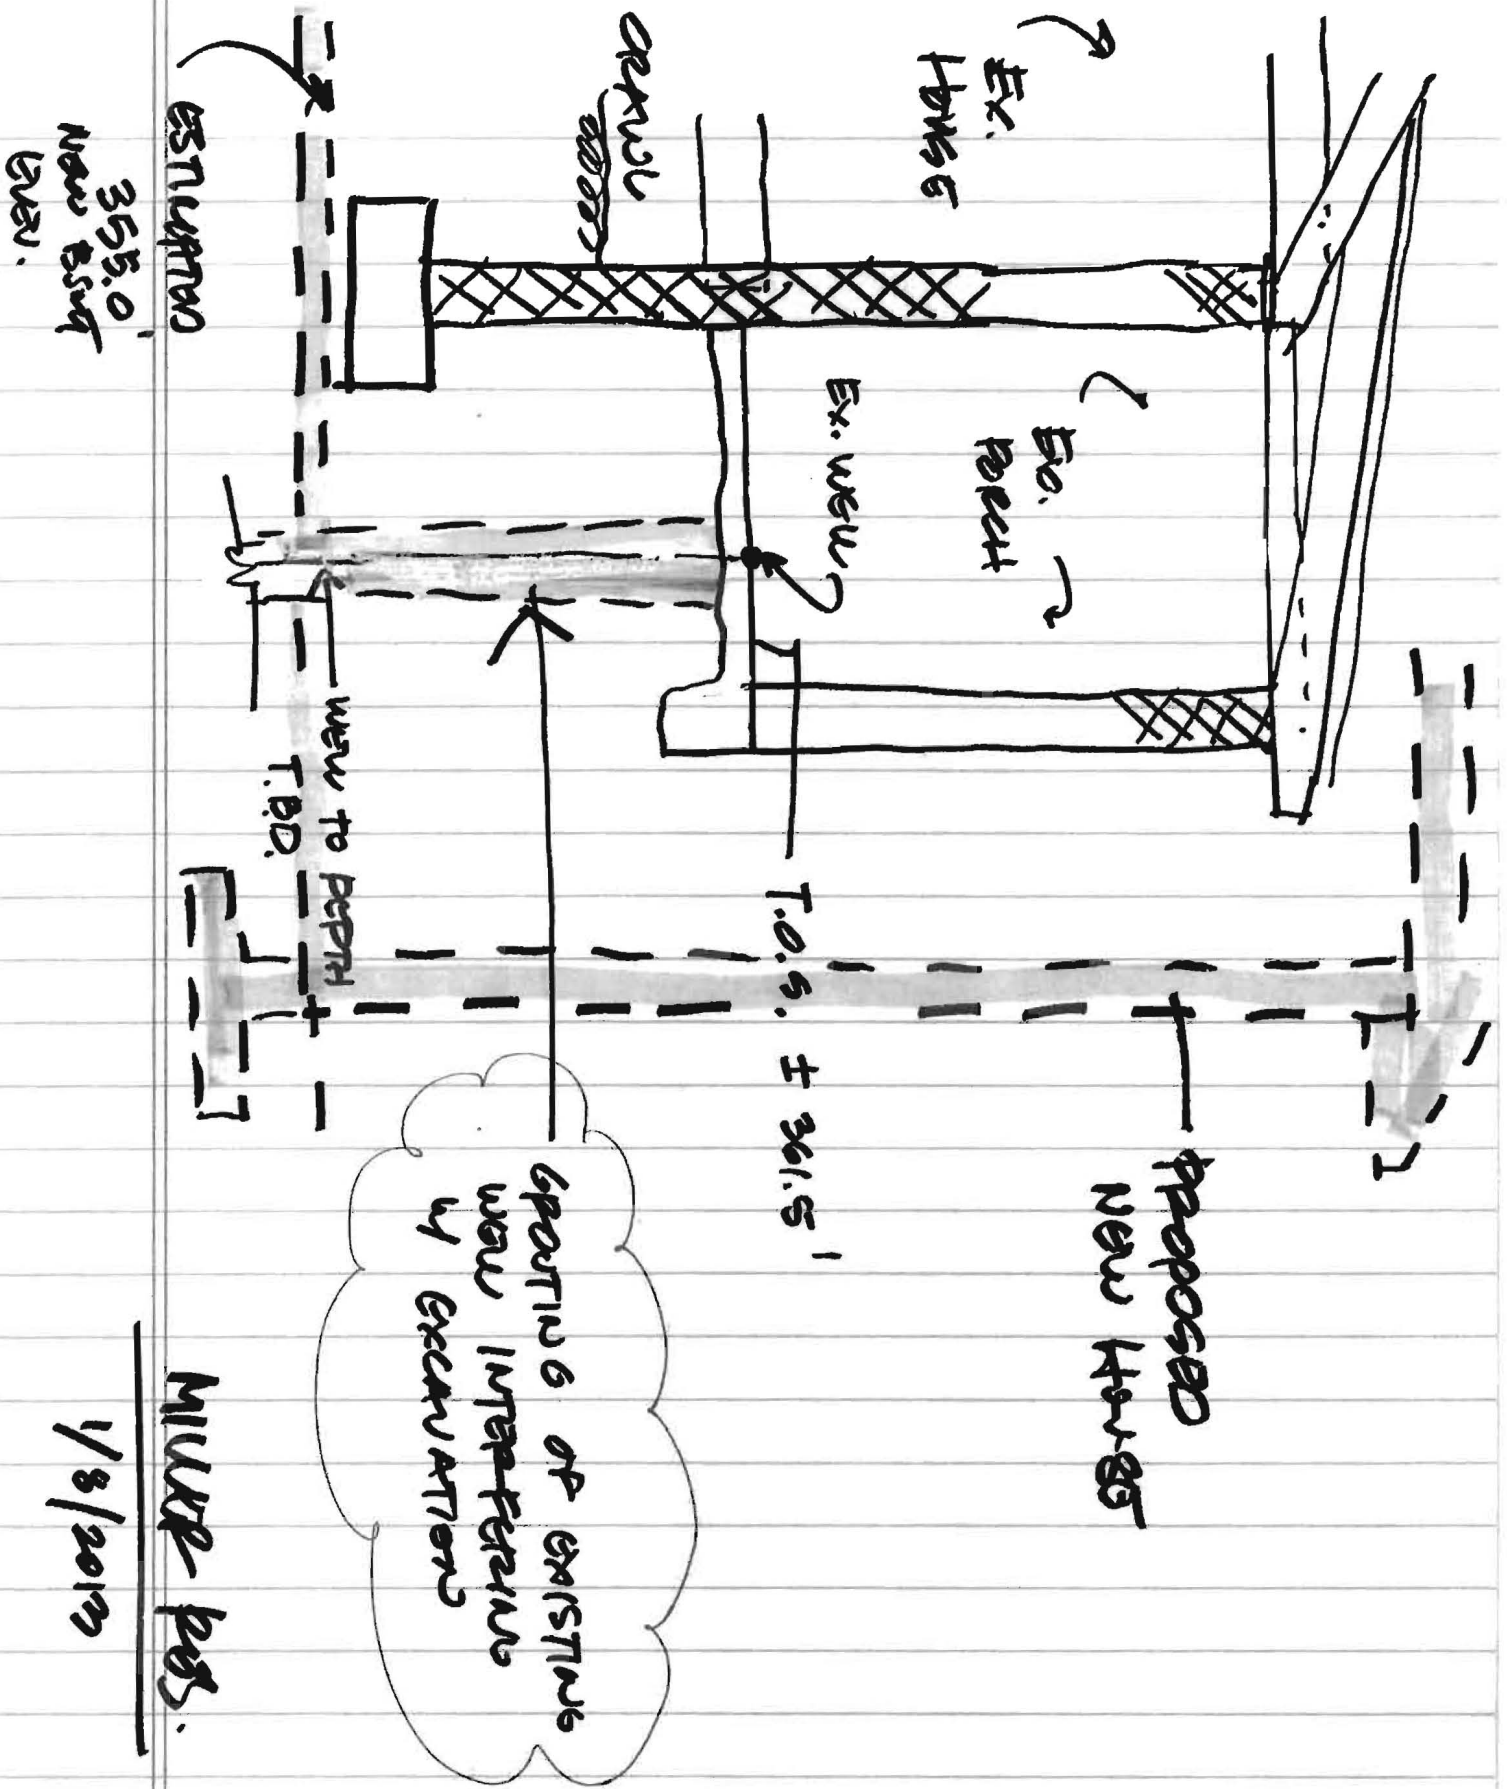 EX.
HOUSE
EX.
PORCH
PROPOSED
NEW HOUSE
CRAWL
EX. WELL
T.O.S. ± 361.5'
GROUTING OF EXISTING
WELL INTERFERING
W/ EXCAVATION
WELL TO DEPTH
T.B.D.
ESTIMATED
355.0'
NEW BSMT
ELEV.
MILLER RES.
1/8/2013